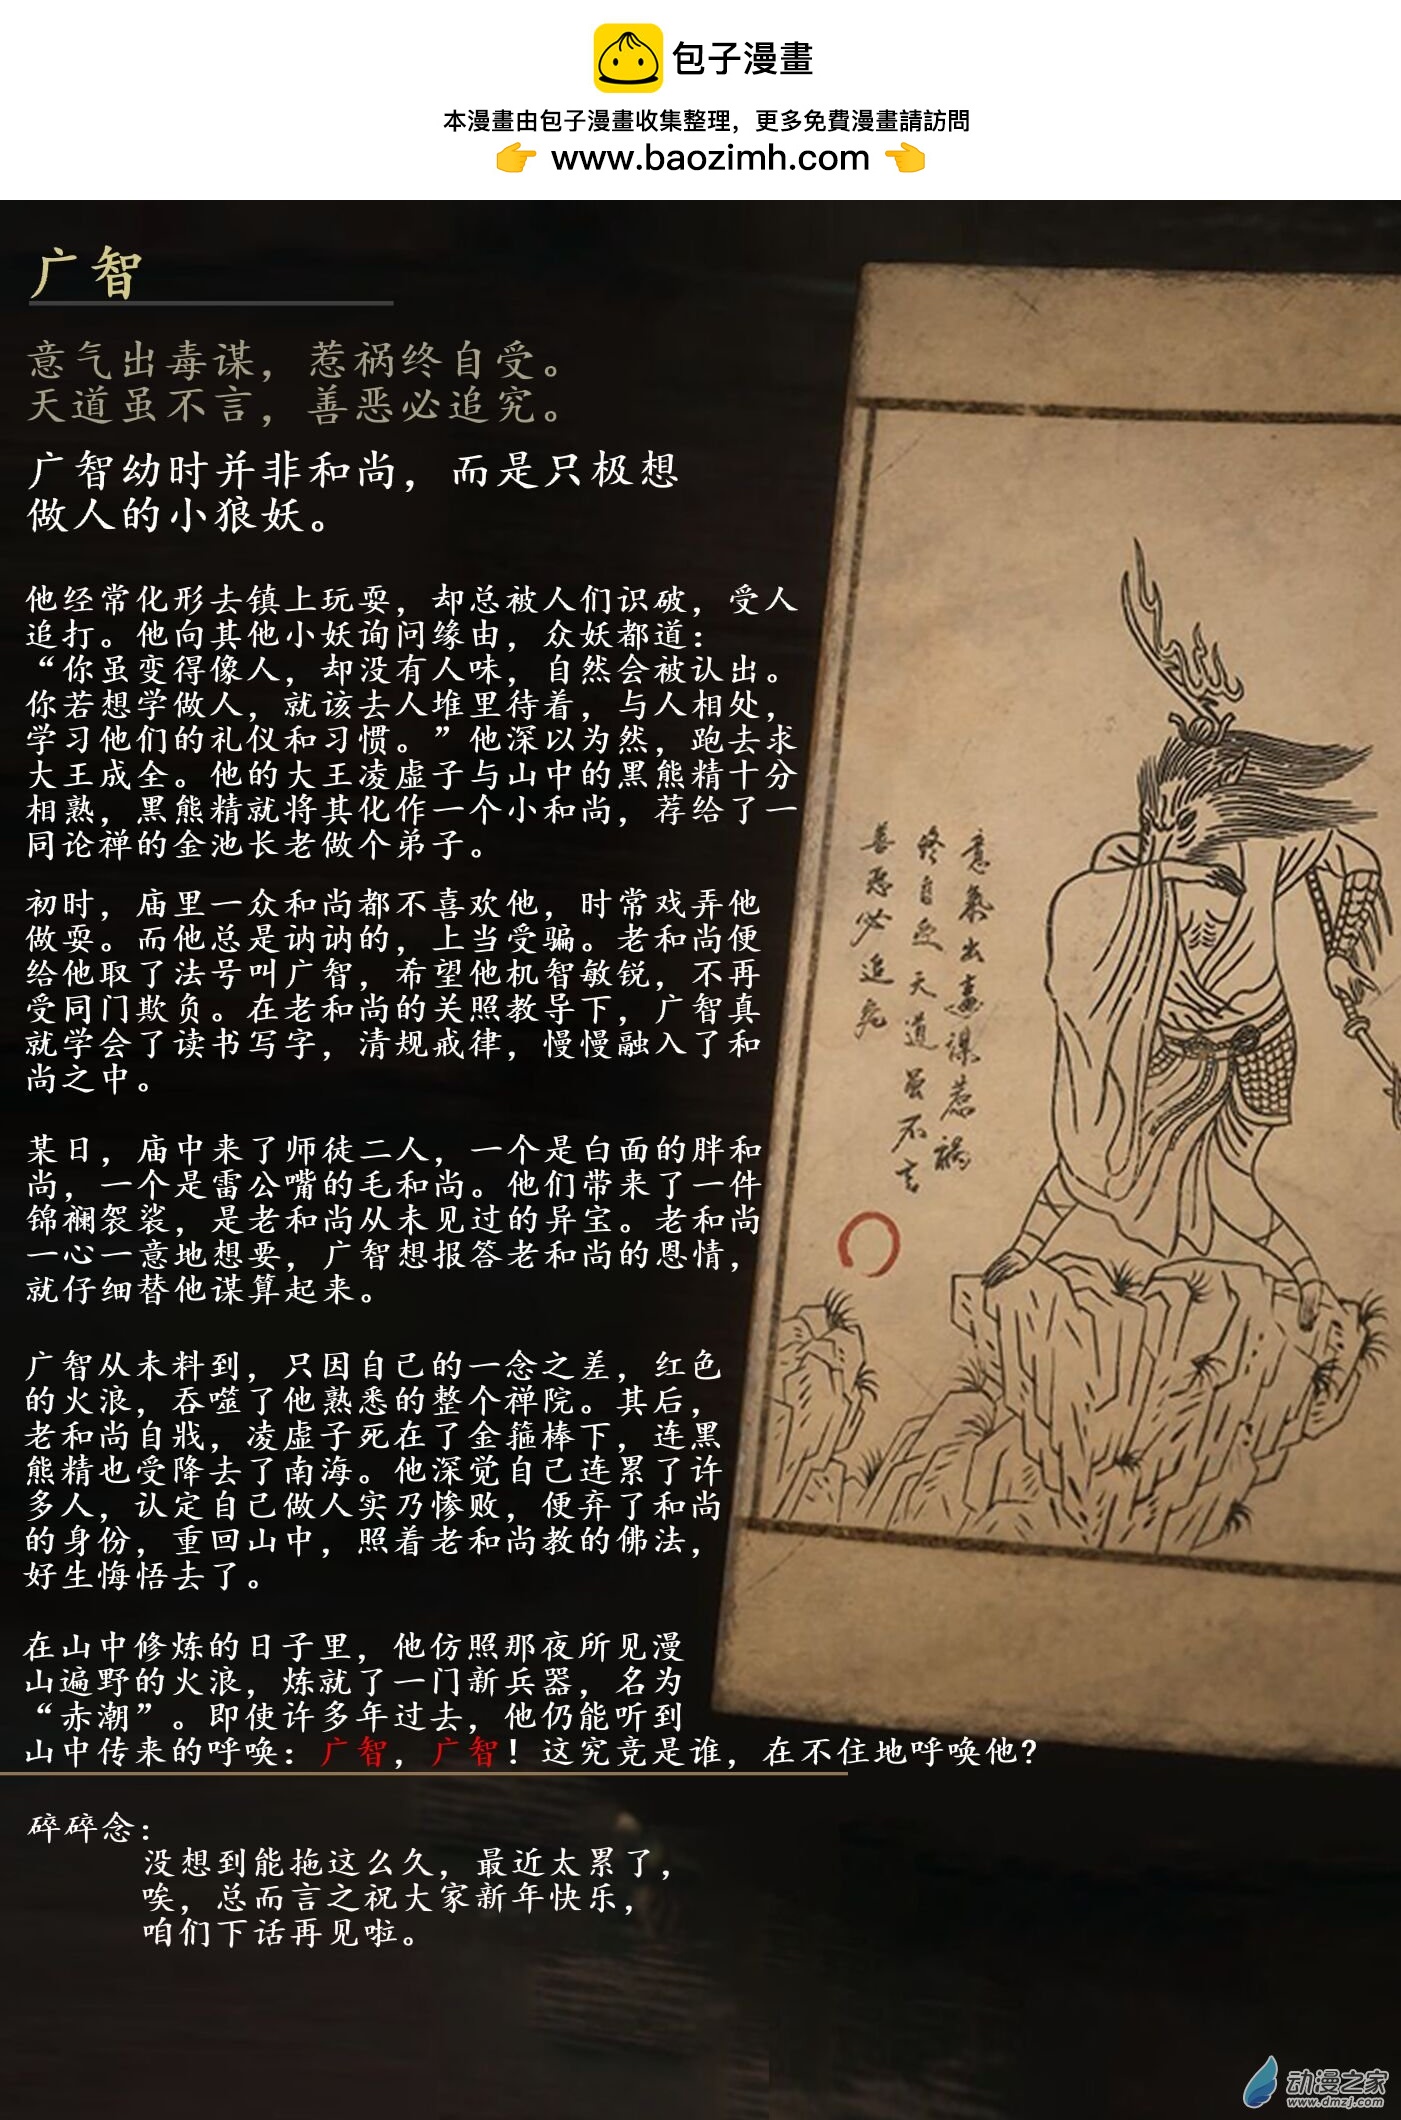 包子漫畫
本漫畫由包子漫畫收集整理，更多免費漫畫請訪問
👉 www.baozimh.com 👈
广智
意气出毒谋，惹祸终自受。
天道虽不言，善恶必追究。
广智幼时并非和尚，而是只极想
做人的小狼妖。
他经常化形去镇上玩耍，却总被人们识破，受人
追打。他向其他小妖询问缘由，众妖都道：
“你虽变得像人，却没有人味，自然会被认出。
你若想学做人，就该去人堆里待着，与人相处，
学习他们的礼仪和习惯。”他深以为然，跑去求
大王成全。他的大王凌虚子与山中的黑熊精十分
相熟，黑熊精就将其化作一个小和尚，荐给了一
同论禅的金池长老做个弟子。
初时，庙里一众和尚都不喜欢他，时常戏弄他
做耍。而他总是讷讷的，上当受骗。老和尚便
给他取了法号叫广智，希望他机智敏锐，不再
受同门欺负。在老和尚的关照教导下，广智真
就学会了读书写字，清规戒律，慢慢融入了和
尚之中。
某日，庙中来了师徒二人，一个是白面的胖和
尚，一个是雷公嘴的毛和尚。他们带来了一件
锦襕袈裟，是老和尚从未见过的异宝。老和尚
一心一意地想要，广智想报答老和尚的恩情，
就仔细替他谋算起来。
广智从未料到，只因自己的一念之差，红色
的火浪，吞噬了他熟悉的整个禅院。其后，
老和尚自戕，凌虚子死在了金箍棒下，连黑
熊精也受降去了南海。他深觉自己连累了许
多人，认定自己做人实乃惨败，便弃了和尚
的身份，重回山中，照着老和尚教的佛法，
好生悔悟去了。
在山中修炼的日子里，他仿照那夜所见漫
山遍野的火浪，炼就了一门新兵器，名为
“赤潮”。即使许多年过去，他仍能听到
山中传来的呼唤：广智，广智！这究竟是谁，在不住地呼唤他？
意氣出毒謀惹禍
終自受天道虽不言
善恶必追究
碎碎念：
没想到能拖这么久，最近太累了，
唉，总而言之祝大家新年快乐，
咱们下话再见啦。
动漫之家
www.dmzj.com